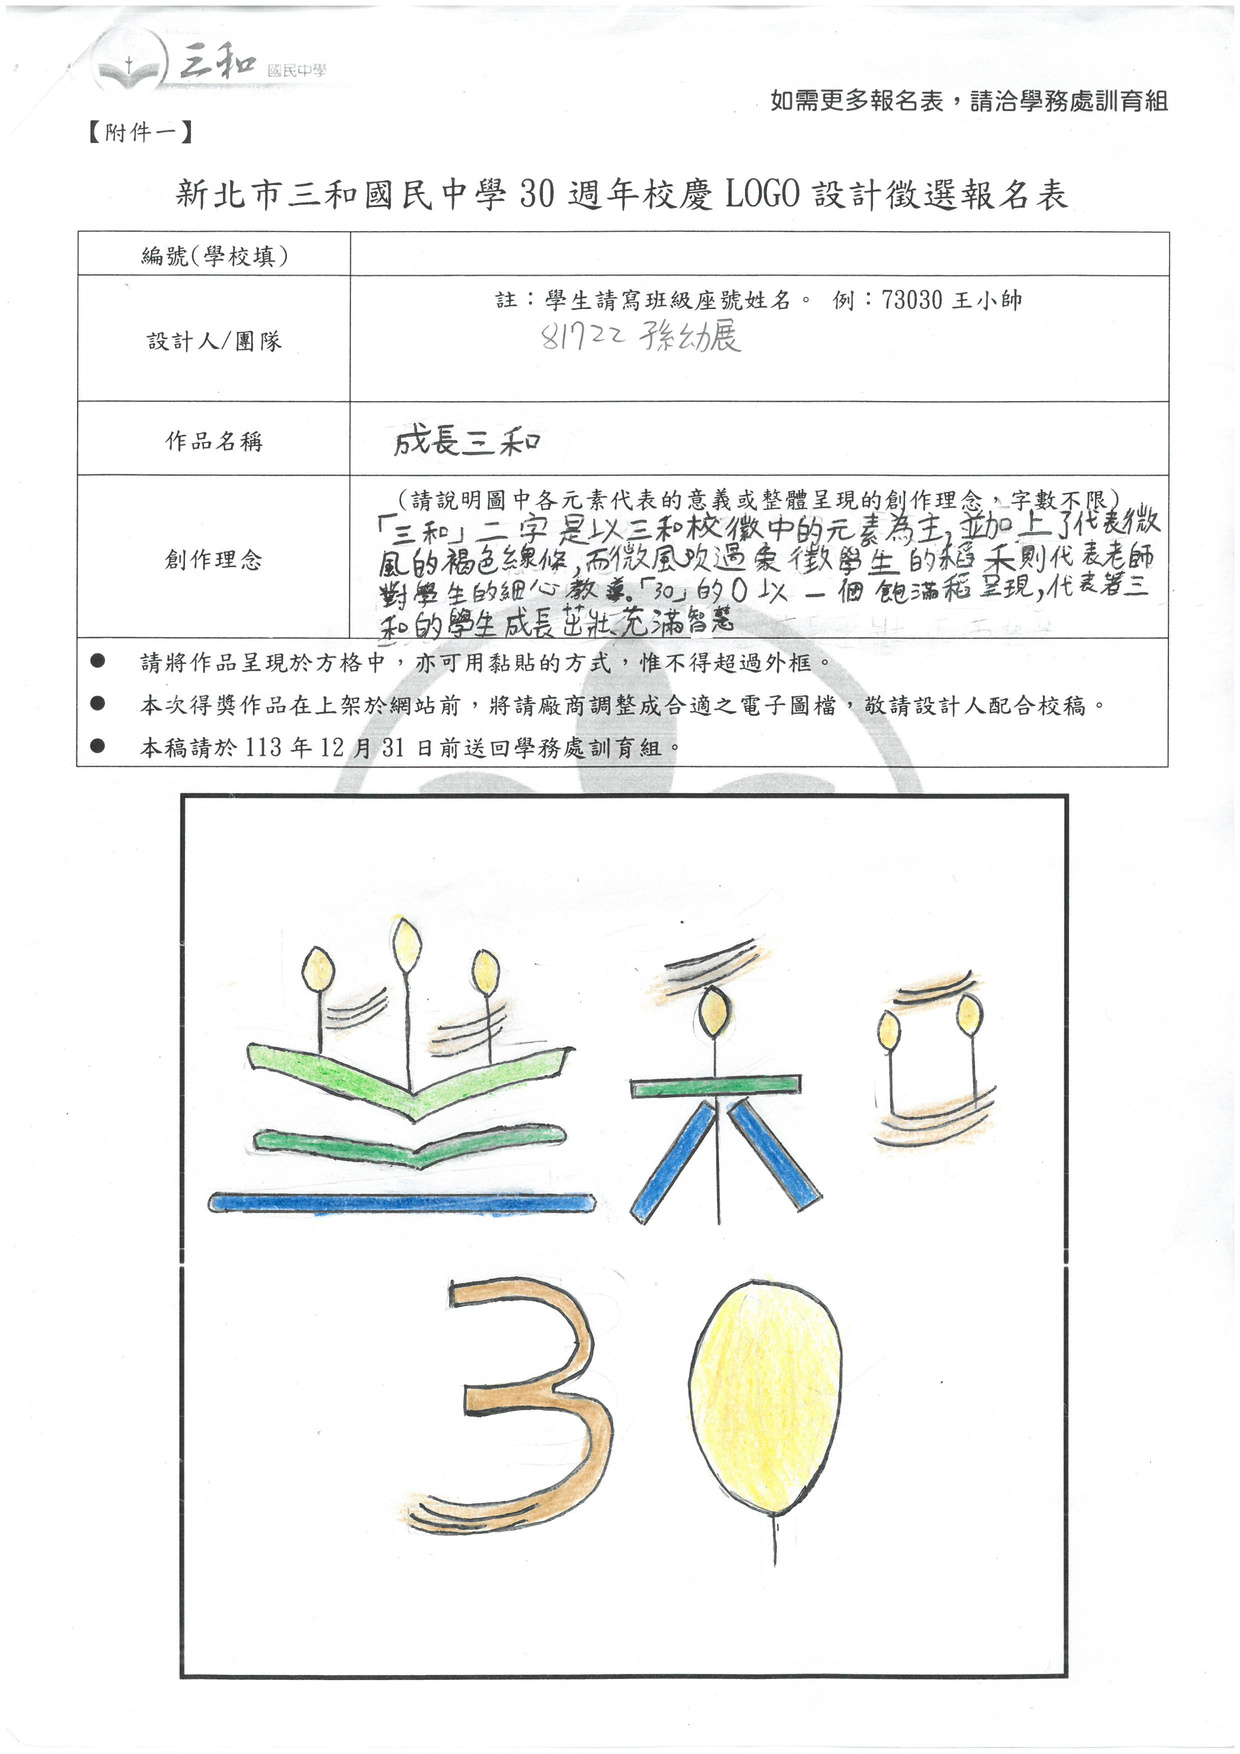 三和 國民中學
如需更多報名表，請洽學務處訓育組
【附件一】
新北市三和國民中學 30 週年校慶 LOGO 設計徵選報名表
編號(學校填)
設計人/團隊
註：學生請寫班級座號姓名。 例：73030 王小帥
81722 孫幼展
作品名稱
成長三和
創作理念
(請說明圖中各元素代表的意義或整體呈現的創作理念，字數不限)
「三和」二字是以三和校徽中的元素為主,並加上了代表微
風的褐色線條,而微風吹過象徵學生的稻禾則代表老師
對學生的細心教導。「30」的0以一個飽滿稻呈現,代表著三
和的學生成長茁壯、充滿智慧
● 請將作品呈現於方格中，亦可用黏貼的方式，惟不得超過外框。
● 本次得獎作品在上架於網站前，將請廠商調整成合適之電子圖檔，敬請設計人配合校稿。
● 本稿請於 113 年 12 月 31 日前送回學務處訓育組。
三和
30